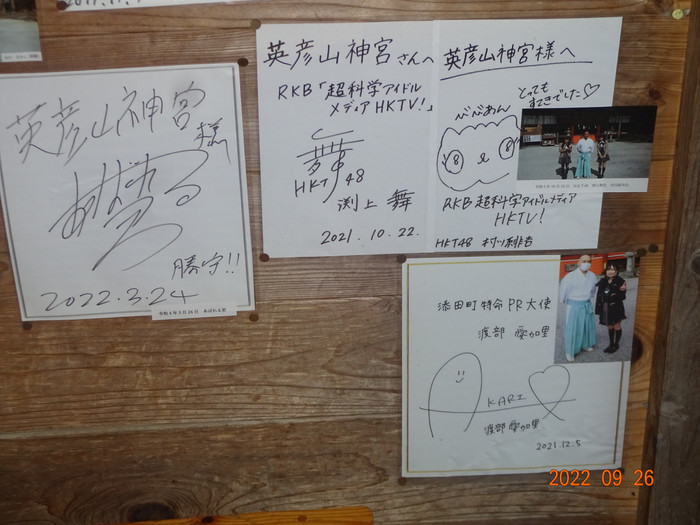 英彦山神宮
様
勝守!!
2022.3.24
英彦山神宮さんへ
RKB「超科学アイドル
メディアHKTV!」
HKT48
渕上 舞
2021.10.22.
英彦山神宮様へ
とっても
すてきでした♡
RKB超科学アイドルメディア
HKTV!
HKT48
添田町特命PR大使
渡部 愛加里
AKARI
渡部 愛加里
2021.12.5
2022 09 26